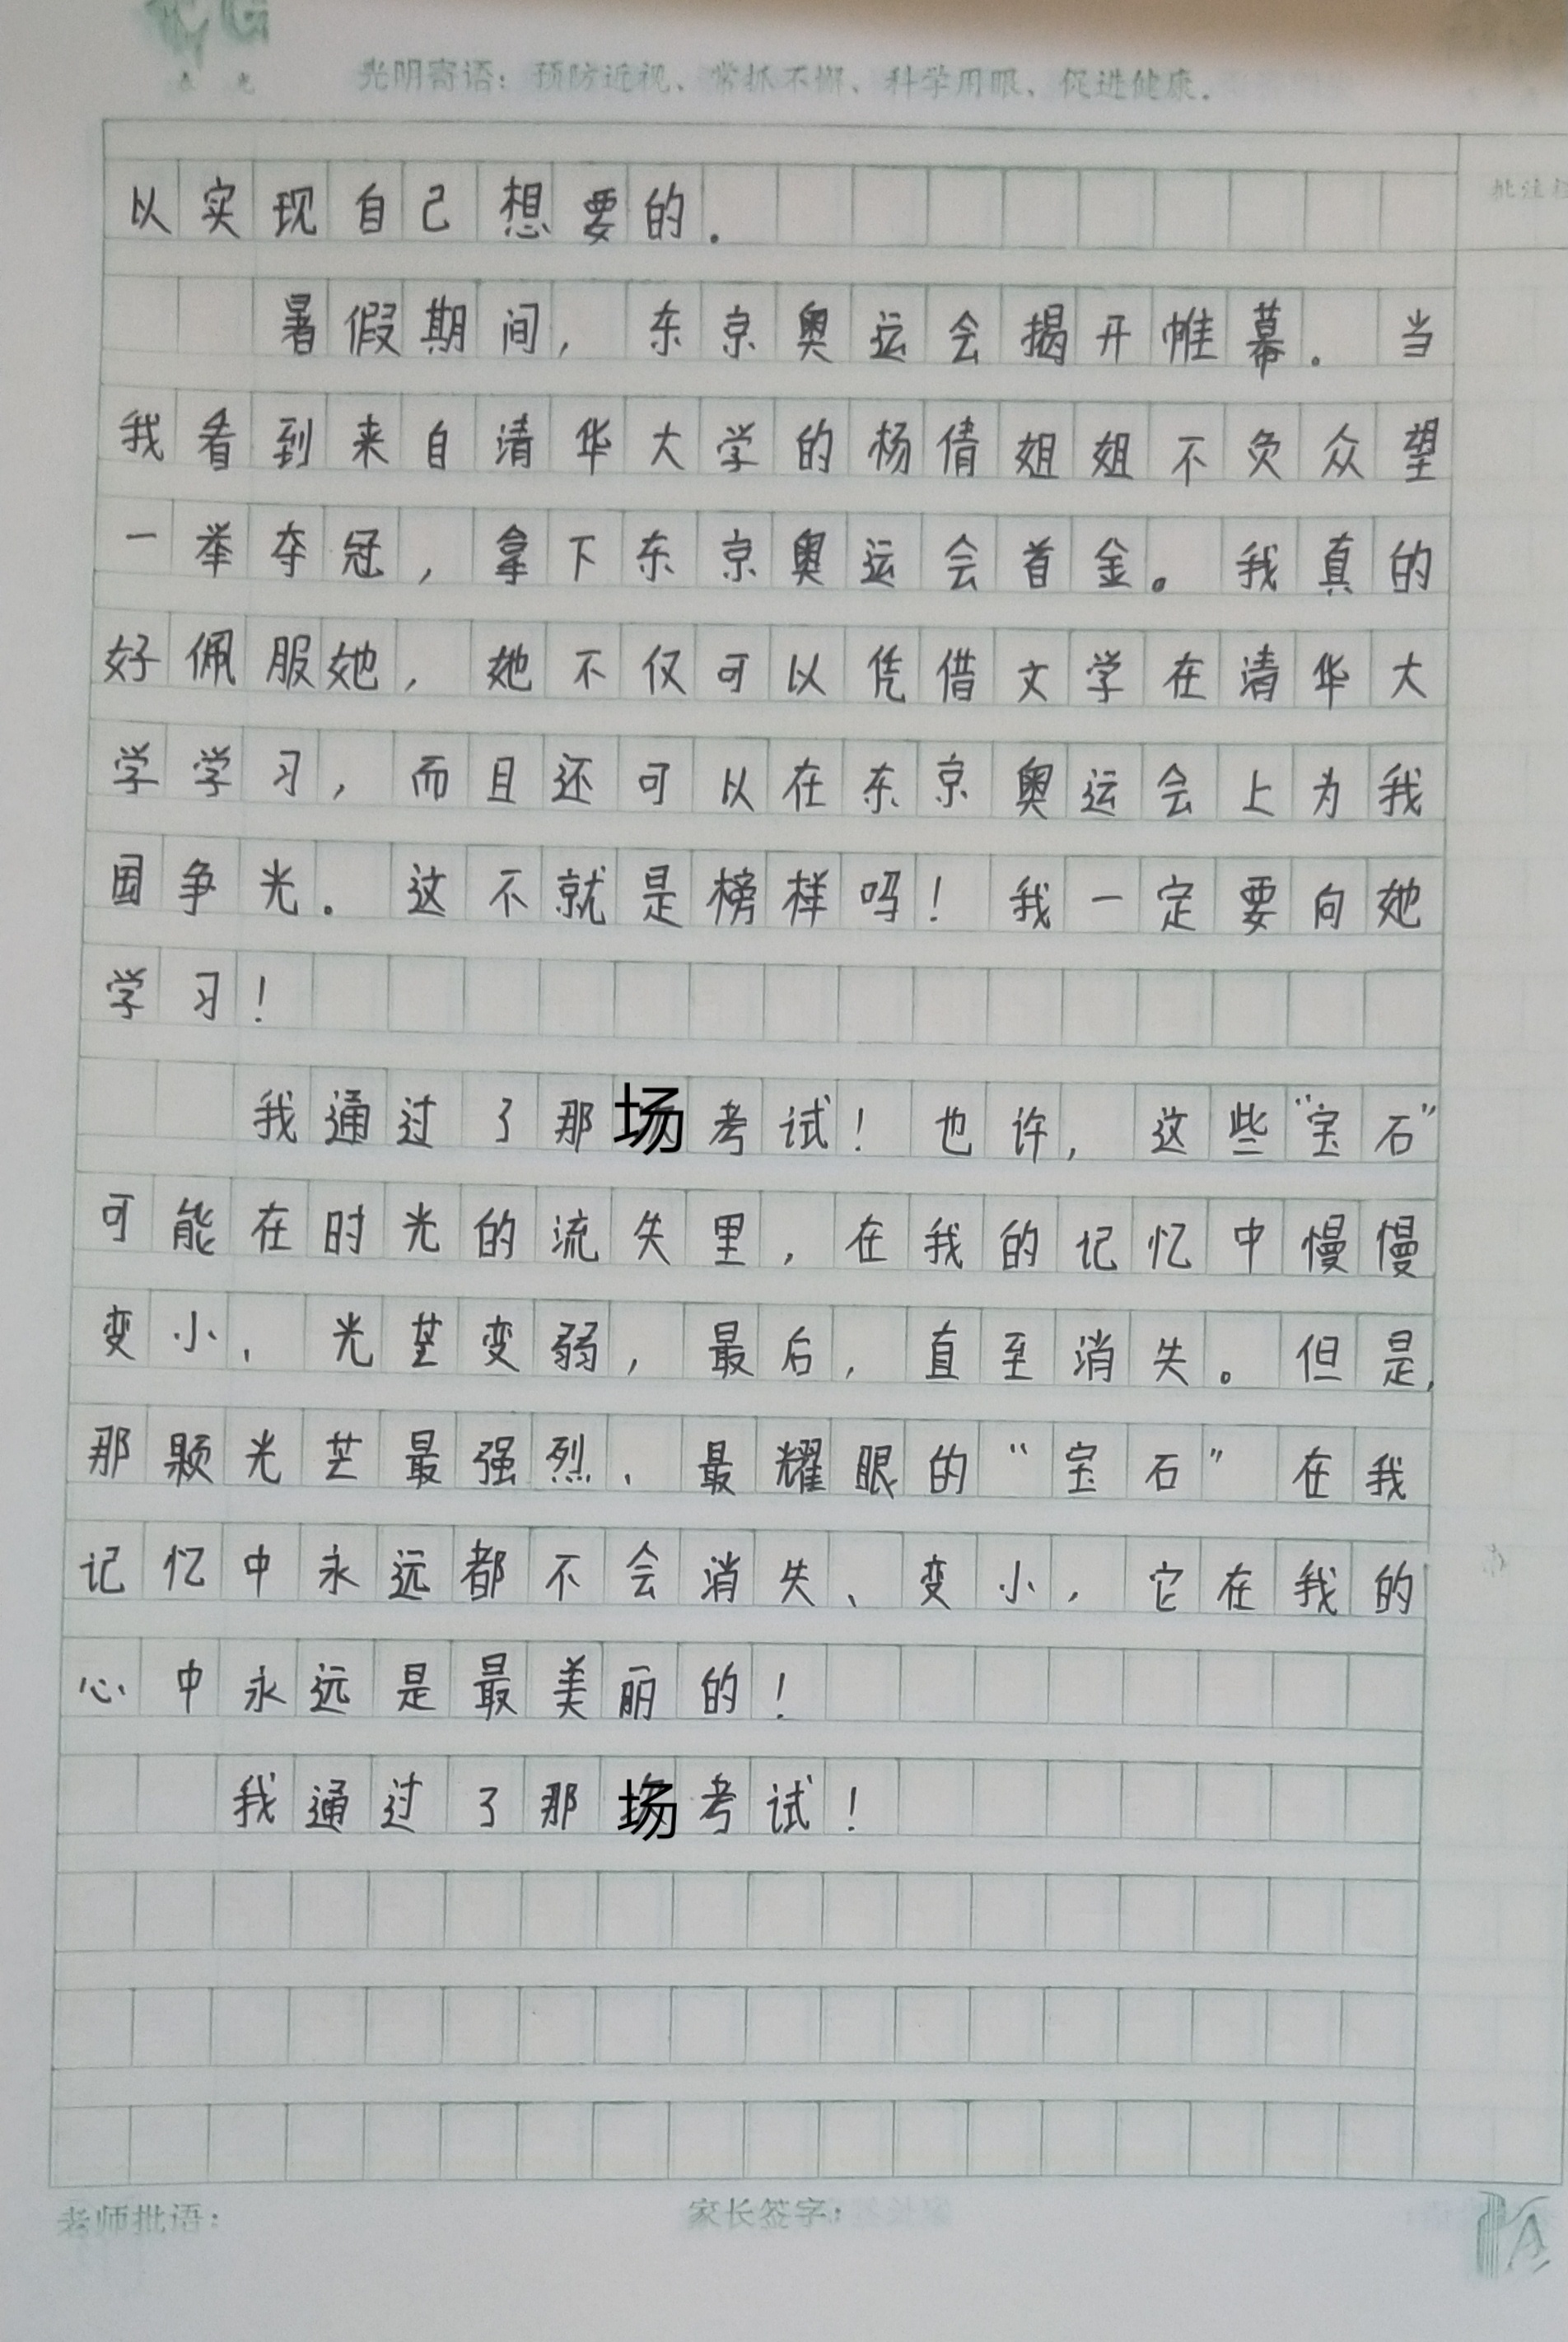 光明寄语：预防近视、常抓不懈、科学用眼、促进健康.
以实现自己想要的.
暑假期间，东京奥运会揭开帷幕.当
我看到来自清华大学的杨倩姐姐不负众望
一举夺冠，拿下东京奥运会首金。我真的
好佩服她，她不仅可以凭借文学在清华大
学学习，而且还可以在东京奥运会上为我
国争光.这不就是榜样吗！我一定要向她
学习！
我通过了那场考试！也许，这些“宝石”
可能在时光的流失里，在我的记忆中慢慢
变小、光芒变弱，最后，直至消失。但是，
那颗光芒最强烈、最耀眼的“宝石”在我
记忆中永远都不会消失、变小，它在我的
心中永远是最美丽的！
我通过了那场考试！
老师批语：
家长签字：